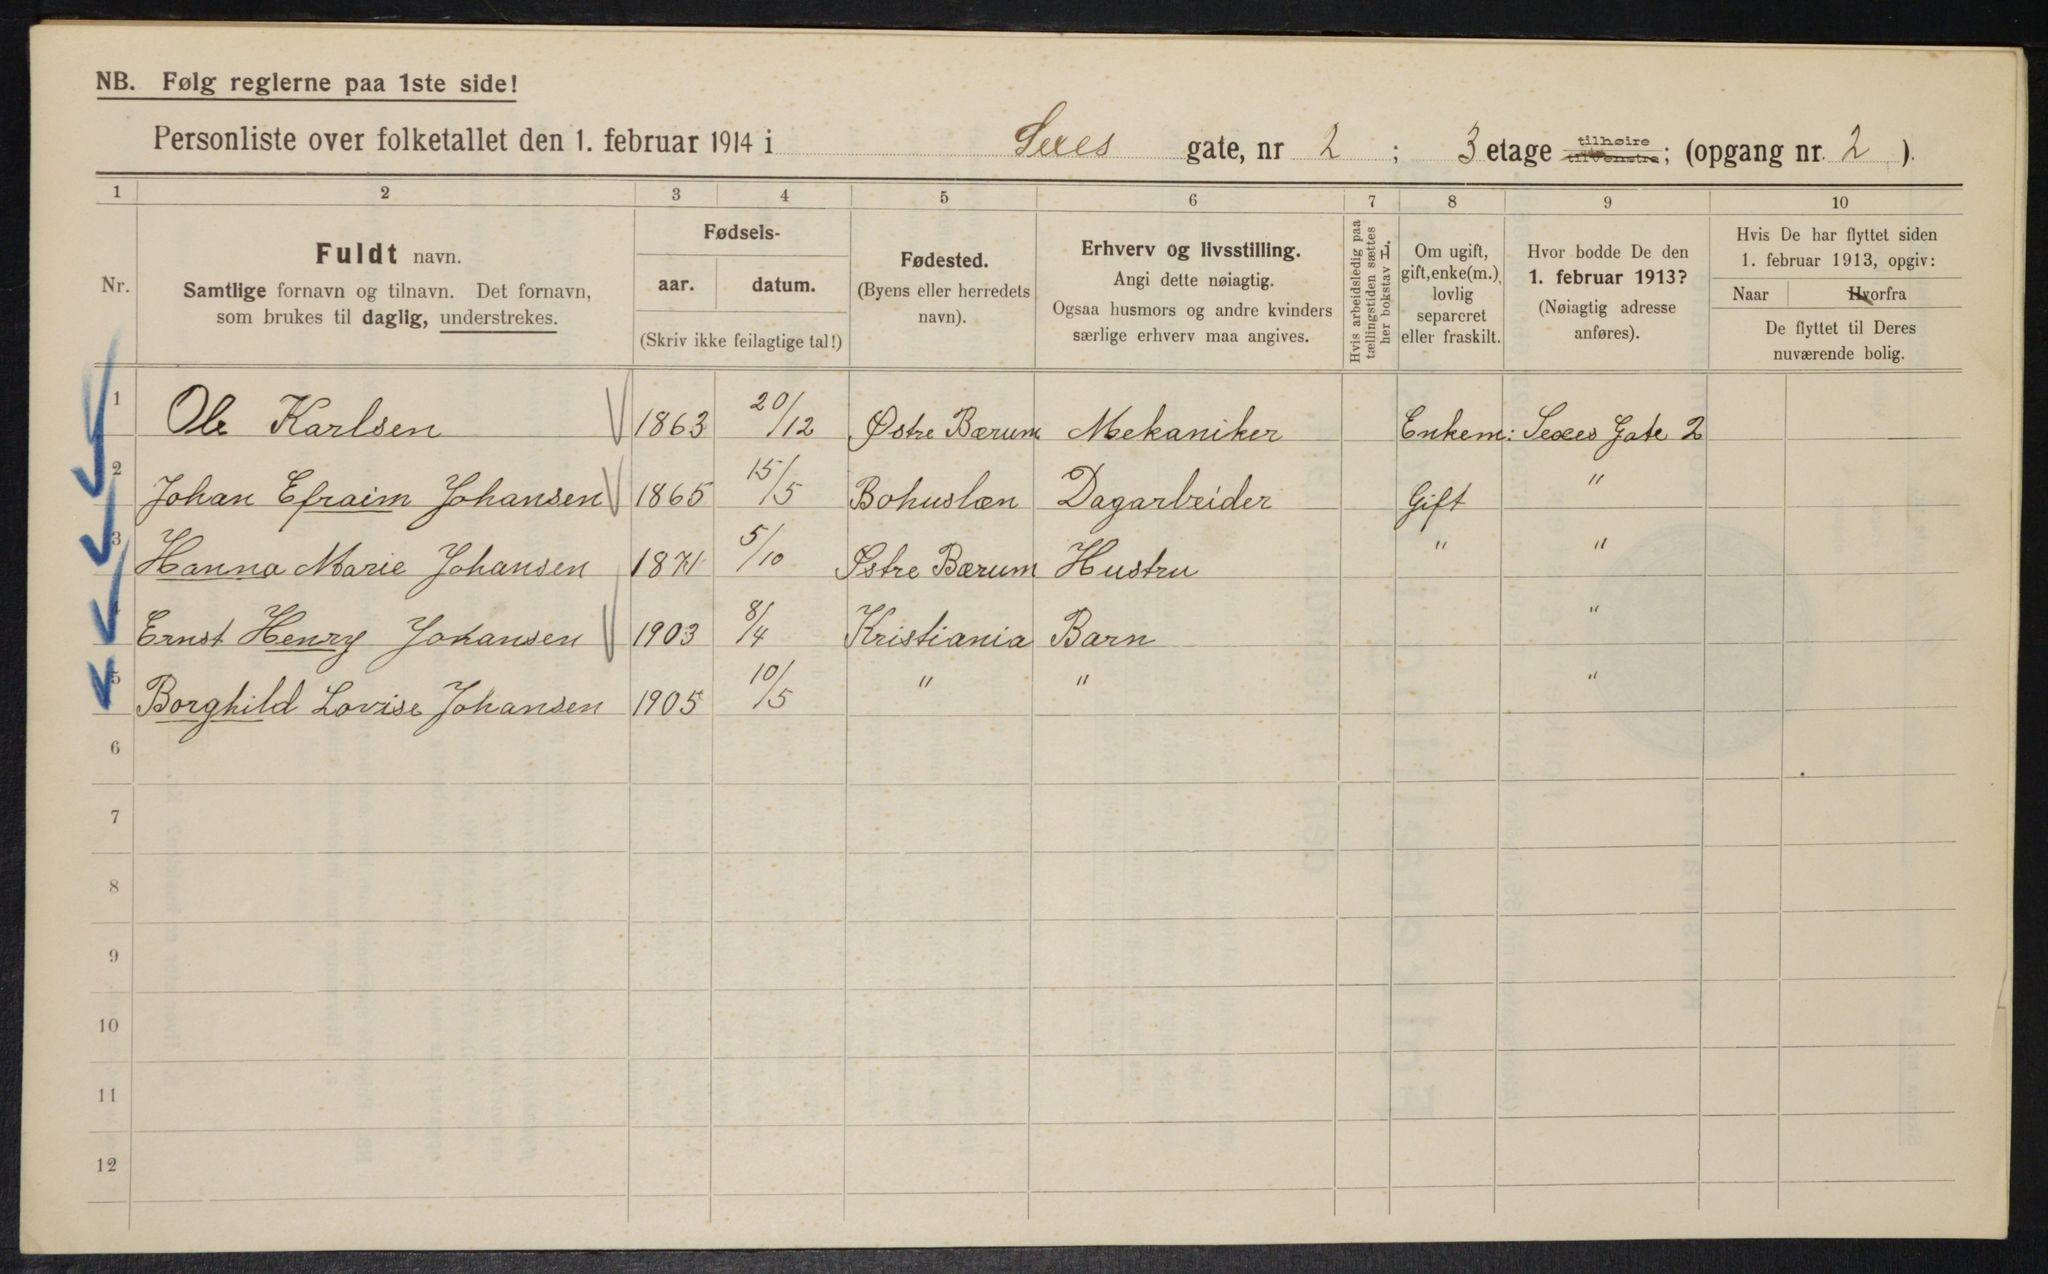 NB. Følg reglerne paa 1ste side!
Personliste over folketallet den 1. februar 1914 i Sexes gate, nr 2 ; 3 etage tilhøire tilvenstre; (opgang nr. 2 ).
1 2 3 4 5 6 7 8 9 10
Nr.
Fuldt navn.
Samtlige fornavn og tilnavn. Det fornavn,
som brukes til daglig, understrekes.
Fødsels-
aar. datum.
(Skriv ikke feilagtige tal!)
Fødested.
(Byens eller herredets
navn).
Erhverv og livsstilling.
Angi dette nøiagtig.
Ogsaa husmors og andre kvinders
særlige erhverv maa angives.
Hvis arbeidsledig paa
tællingstiden sættes
her bokstav L.
Om ugift,
gift, enke(m.),
lovlig
separeret
eller fraskilt.
Hvor bodde De den
1. februar 1913?
(Nøiagtig adresse
anføres).
Hvis De har flyttet siden
1. februar 1913, opgiv:
Naar Hvorfra
De flyttet til Deres
nuværende bolig.
1 Ole Karlsen 1863 20/12 Østre Bærum Mekaniker Enkem: Sexes Gate 2
2 Johan Efraim Johansen 1865 15/5 Bohuslæn Dagarbeider Gift "
3 Hanna Marie Johansen 1871 5/10 Østre Bærum Hustru " "
4 Ernst Henry Johansen 1903 8/4 Kristiania Barn "
5 Borghild Lovise Johansen 1905 10/5 " " "
6
7
8
9
10
11
12